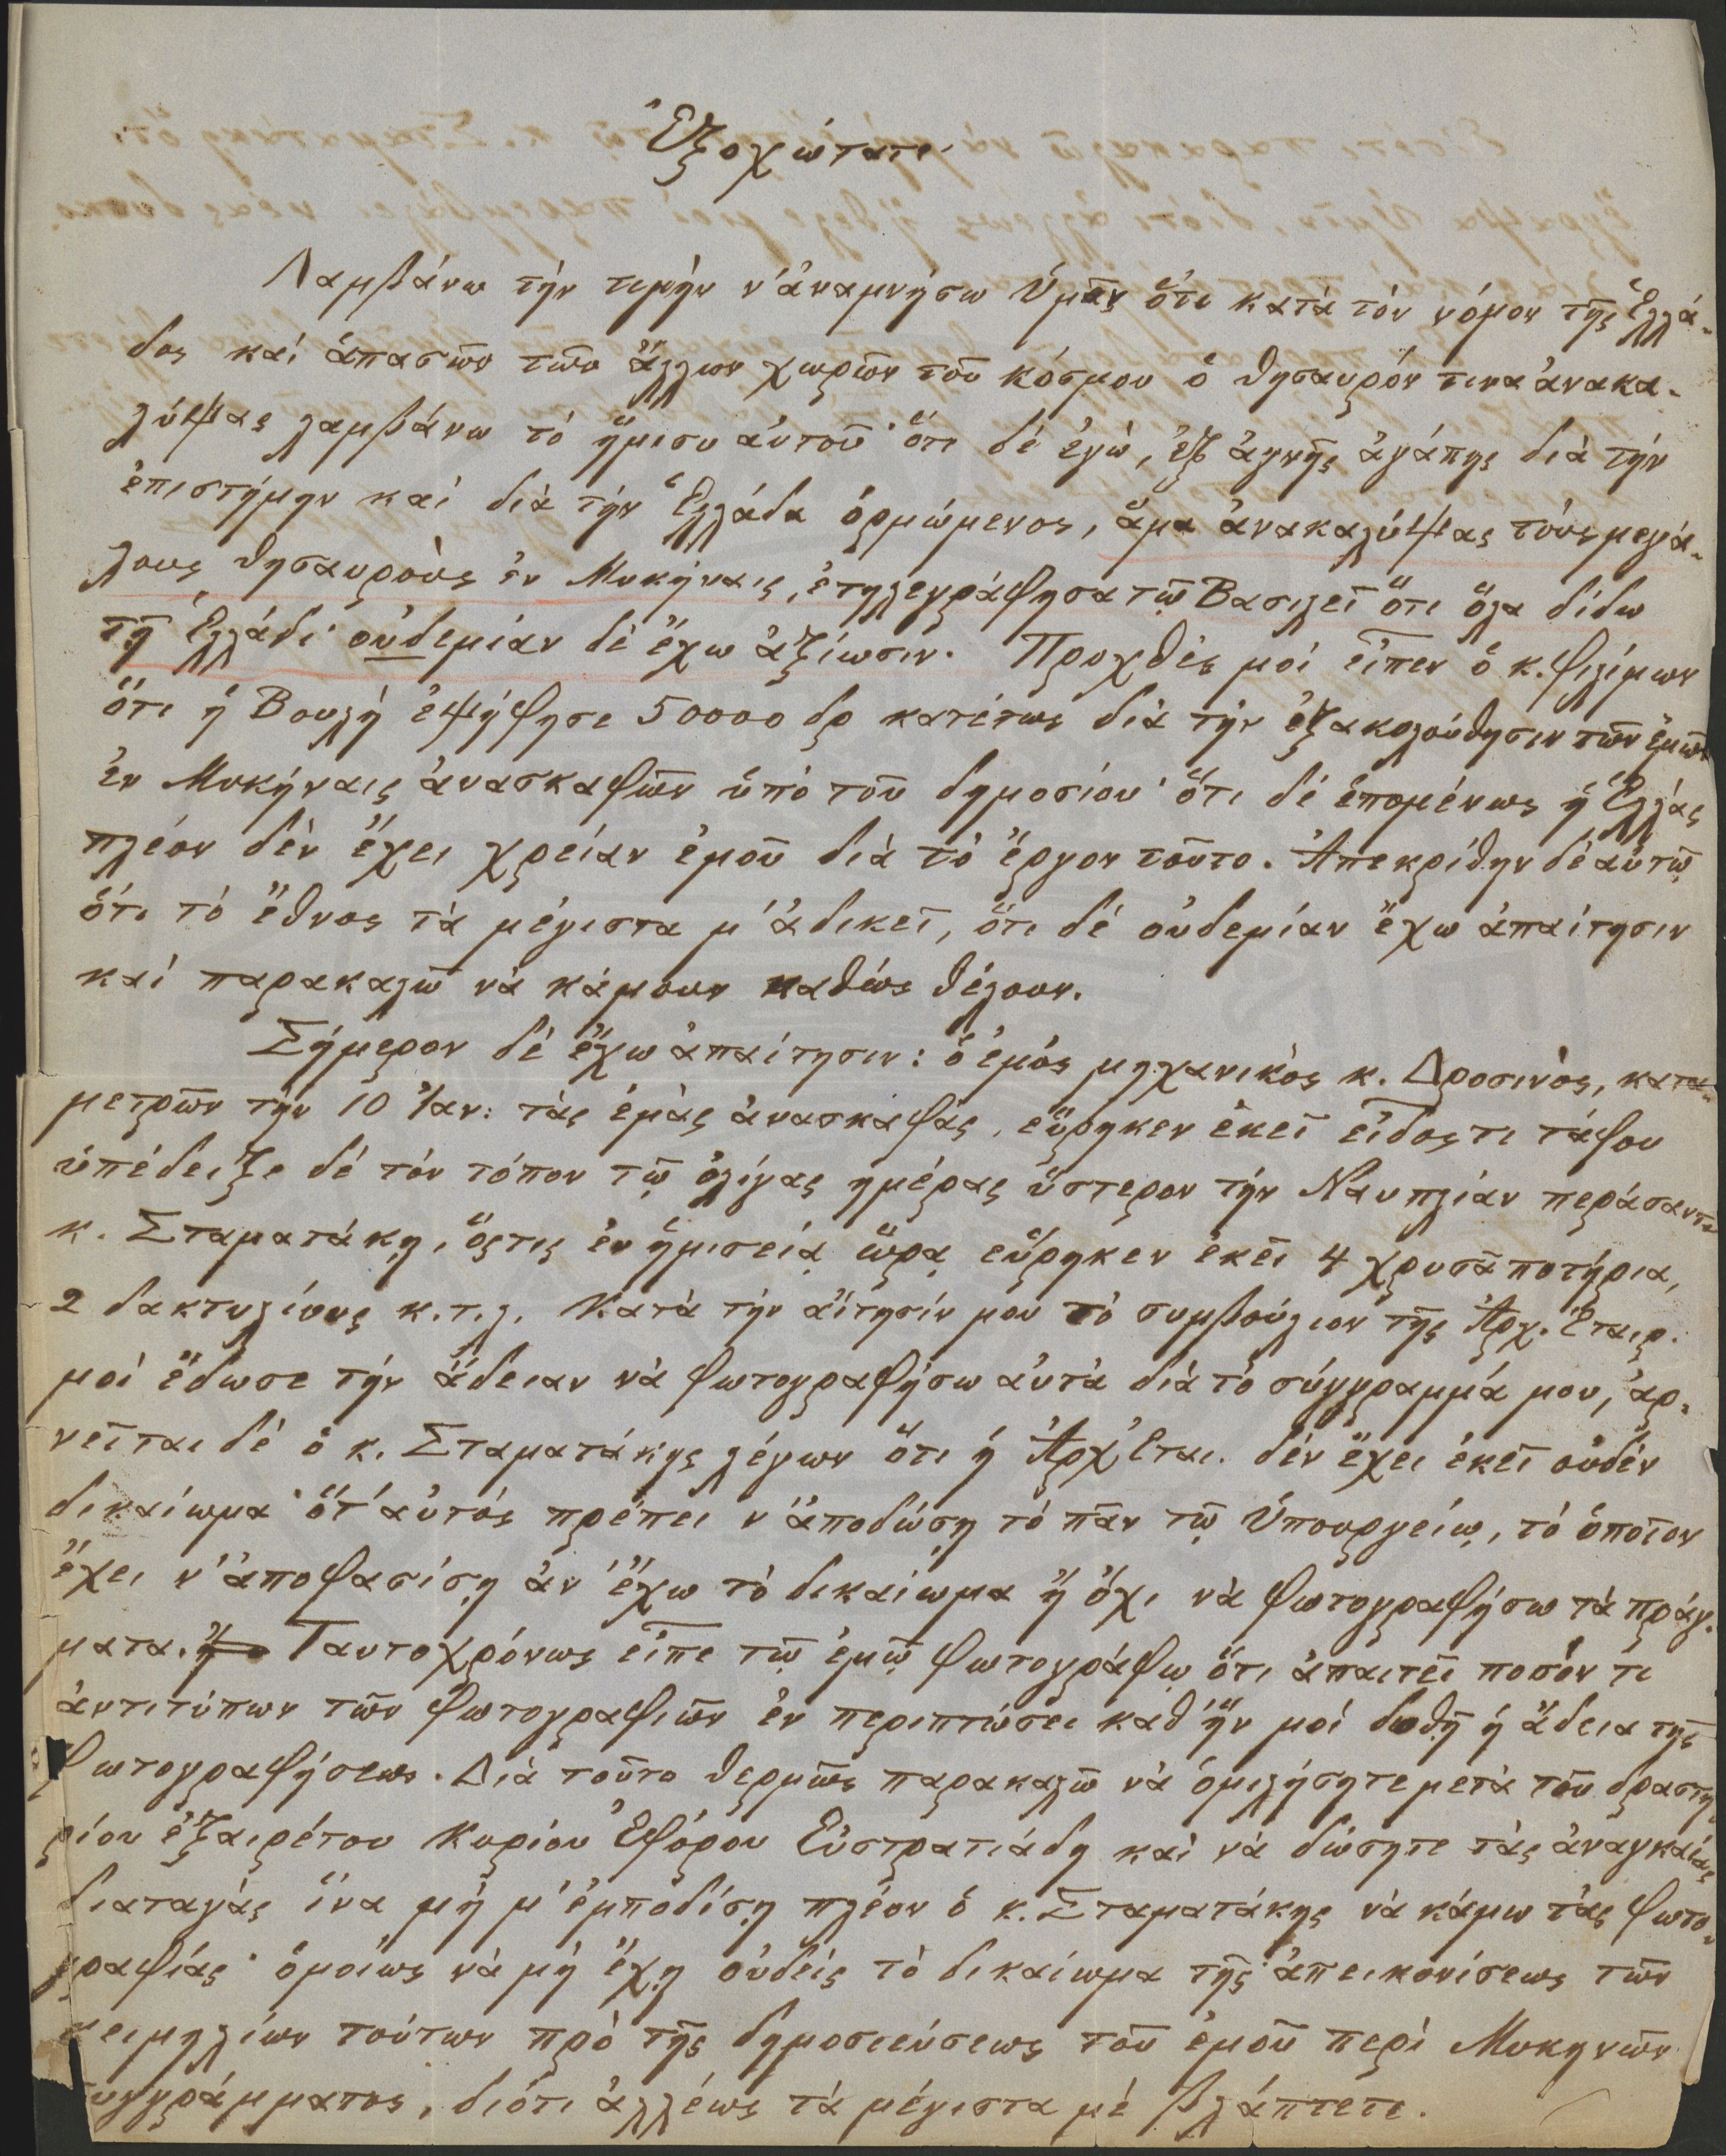 Ἐξοχώτατε
Λαμβάνω τὴν τιμὴν ν' ἀναμνήσω Ὑμᾶς ὅτι κατὰ τὸν νόμον τῆς Ἑλλά-
δος καὶ ἁπασῶν τῶν ἄλλων χωρῶν τοῦ κόσμου ὁ θησαυρόν τινα ἀνακα-
λύψας λαμβάνω τὸ ἥμισυ αὐτοῦ· ὅτι δὲ ἐγὼ, ἐξ ἁγνῆς ἀγάπης διὰ τὴν
ἐπιστήμην καὶ διὰ τὴν Ἑλλάδα ὁρμώμενος, ἅμα ἀνακαλύψας τοὺς μεγά-
λους θησαυροὺς ἐν Μυκήναις, ἐτηλεγράφησα τῷ Βασιλεῖ ὅτι ὅλα δίδω
τῇ Ἑλλάδι· οὐδεμίαν δὲ ἔχω ἀξίωσιν. Προχθὲς μοὶ εἶπεν ὁ κ. Φιλήμων
ὅτι ἡ Βουλὴ ἐψήφησε 50000 δρ κατ' ἔτος διὰ τὴν ἐξακολούθησιν τῶν ἐμῶν
ἐν Μυκήναις ἀνασκαφῶν ὑπὸ τοῦ δημοσίου· ὅτι δὲ ἑπομένως ἡ Ἑλλὰς
πλέον δὲν ἔχει χρείαν ἐμοῦ διὰ τὸ ἔργον τοῦτο. Ἀπεκρίθην δὲ αὐτῷ
ὅτι τὸ ἔθνος τὰ μέγιστα μ' ἀδικεῖ, ὅτι δὲ οὐδεμίαν ἔχω ἀπαίτησιν
καὶ παρακαλῶ νὰ κάμουν καθὼς θέλουν.
Σήμερον δὲ ἔχω ἀπαίτησιν: ὁ ἐμὸς μηχανικὸς κ. Δροσινὸς, κατα-
μετρῶν τὴν 10 Ἰαν: τὰς ἐμὰς ἀνασκαφάς, εὕρηκεν ἐκεῖ εἶδος τι τάφου
ὑπέδειξε δὲ τὸν τόπον τῷ ὀλίγας ημέρας ὕστερον τὴν Ναυπλίαν περάσαντι
κ. Σταματάκῃ, ὅςτις ἐν ἡμισείᾳ ὥρᾳ εὕρηκεν ἐκεῖ 4 χρυσᾶ ποτήρια,
2 δακτυλίους κ.τ.λ. Κατὰ τὴν αἴτησίν μου τὸ συμβούλιον τῆς Ἀρχ. Ἑταιρ.
μοὶ ἔδωσε τὴν ἄδειαν νὰ φωτογραφήσω αὐτὰ διὰ τὸ σύγγραμμά μου, ἀρ-
νεῖται δὲ ὁ κ. Σταματάκης λέγων ὅτι ἡ Ἀρχ Ἑται. δὲν ἔχει ἐκεῖ οὐδὲν
δικαίωμα· ὅτ' αὐτὸς πρέπει ν' ἀποδώσῃ τὸ πᾶν τῷ Ὑπουργείῳ, τὸ ὁποῖον
ἔχει ν' ἀποφασίσῃ ἂν ἔχω τὸ δικαίωμα ἢ ὄχι νὰ φωτογραφήσω τὰ πράγ-
ματα. Ταυτοχρόνως εἶπε τῷ ἐμῷ φωτογράφῳ ὅτι ἀπαιτεῖ ποσόν τι
ἀντιτύπων τῶν φωτογραφιῶν ἐν περιπτώσει καθ' ἣν μοὶ δωθῇ ἡ ἄδεια τῆς
φωτογραφήσεως. Διὰ τοῦτο θερμῶς παρακαλῶ νὰ ὁμιλήσητε μετὰ τοῦ δραστη-
ρίου ἐξαιρέτου Κυρίου Ἐφόρου Εὐστρατιάδη καὶ νὰ δώσητε τὰς ἀναγκαίας
διαταγὰς ἵνα μὴ μ' ἐμποδίσῃ πλέον ὁ κ. Σταματάκης νὰ κάμω τὰς φωτο-
γραφίας· ὁμοίως νὰ μὴ ἔχῃ οὐδεὶς τὸ δικαίωμα τῆς ἀπεικονίσεως τῶν
κειμηλίων τούτων πρὸ τῆς δημοσιεύσεως τοῦ ἐμοῦ περὶ Μυκηνῶν
συγγράμματος, διότι ἀλλέως τὰ μέγιστα μὲ βλάπτετε.